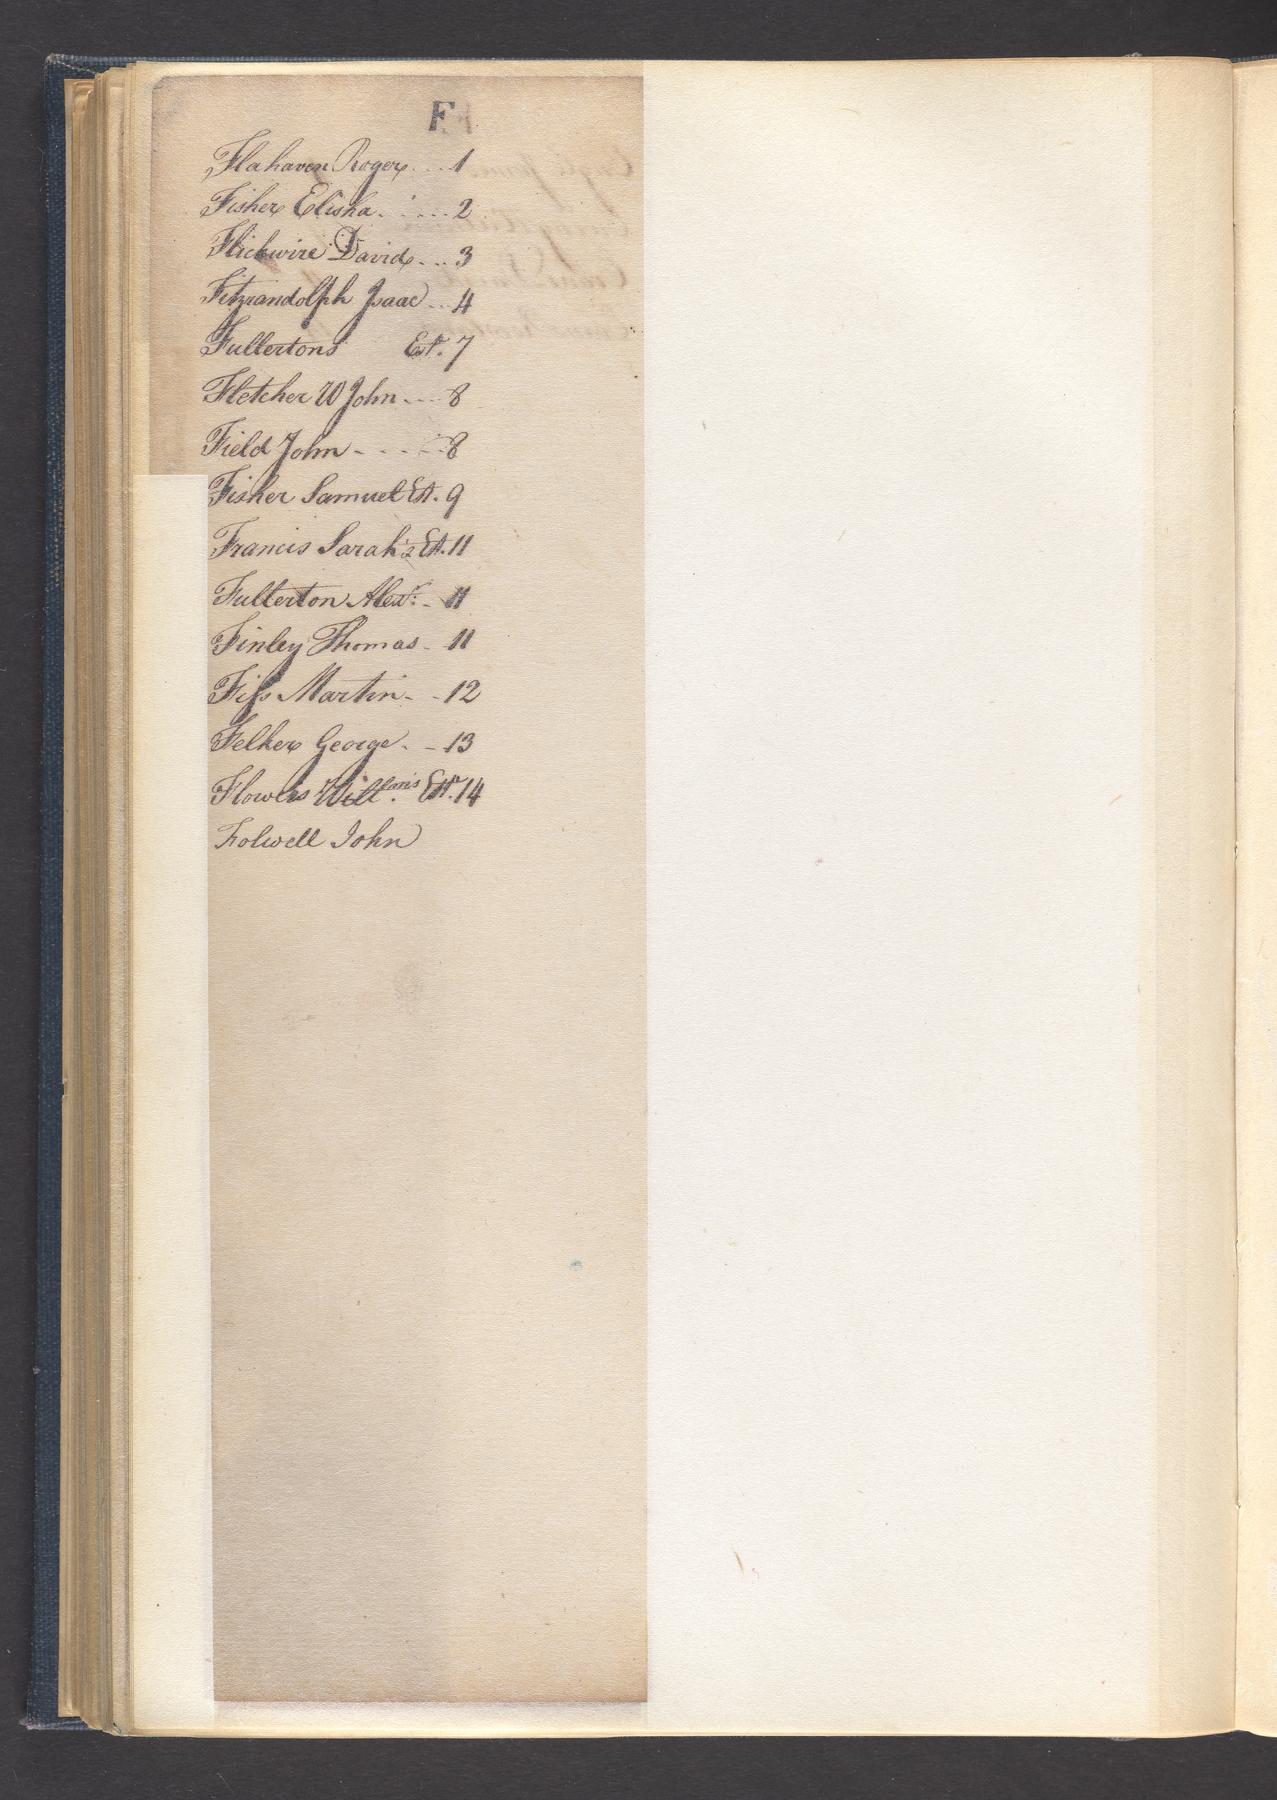 F
Flahaven Roger....1
Fisher Elisha.....2
Flickwire David...3
Fitzrandolph Isaac...4
Fullertons Est. 7
Fletcher W John....8
Field John - - - - - 8
Fisher Samuel Est. 9
Francis Sarah's Est. 11
Fullerton Alexr: - 11
Finley Thomas - 11
Fiss Martin - - 12
Felker George. - 13
Flowers Will.am's Est. 14
Folwell John